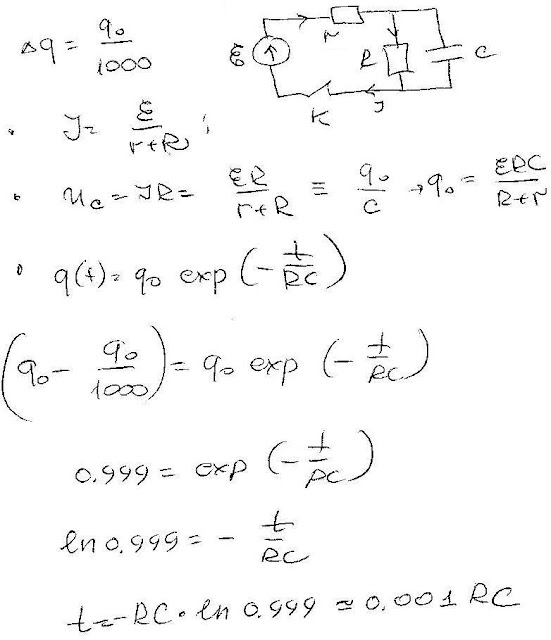 Δq = q₀/1000
ℰ r R C
K J
• J = ℰ/(r+R) ;
• U_C = JR = ℰR/(r+R) ≡ q₀/C → q₀ = ℰRC/(R+r)
• q(t) = q₀ exp (- t/RC)
(q₀ - q₀/1000) = q₀ exp (- t/RC)
0.999 = exp (- t/RC)
ln 0.999 = - t/RC
t = -RC · ln 0.999 ≈ 0.001 RC